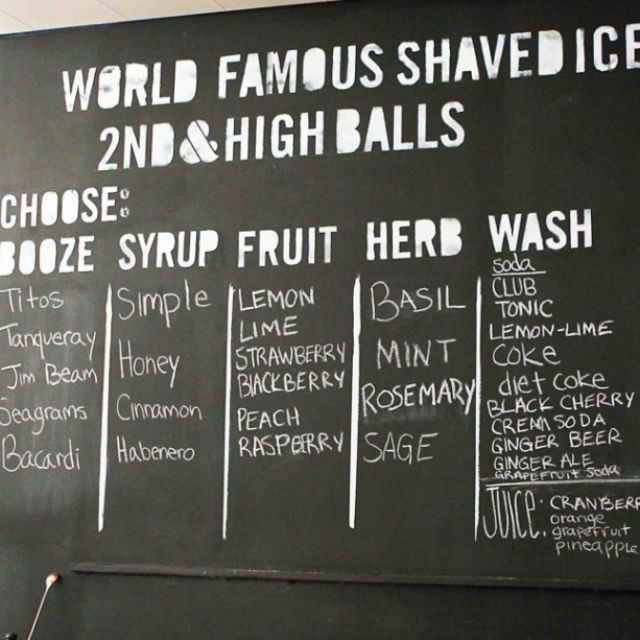 WORLD FAMOUS SHAVED ICE
2ND & HIGH BALLS
CHOOSE:
BOOZE
Titos
Tanqueray
Jim Beam
Seagrams
Bacardi
SYRUP
Simple
Honey
Cinnamon
Habenero
FRUIT
LEMON
LIME
STRAWBERRY
BLACKBERRY
PEACH
RASPBERRY
HERB
BASIL
MINT
ROSEMARY
SAGE
WASH
soda
CLUB
TONIC
LEMON-LIME
COKE
diet COKE
BLACK CHERRY
CREAM SODA
GINGER BEER
GINGER ALE
GRAPEFRUIT Soda
JUICE: CRANBERR
orange
grapefruit
pineapple